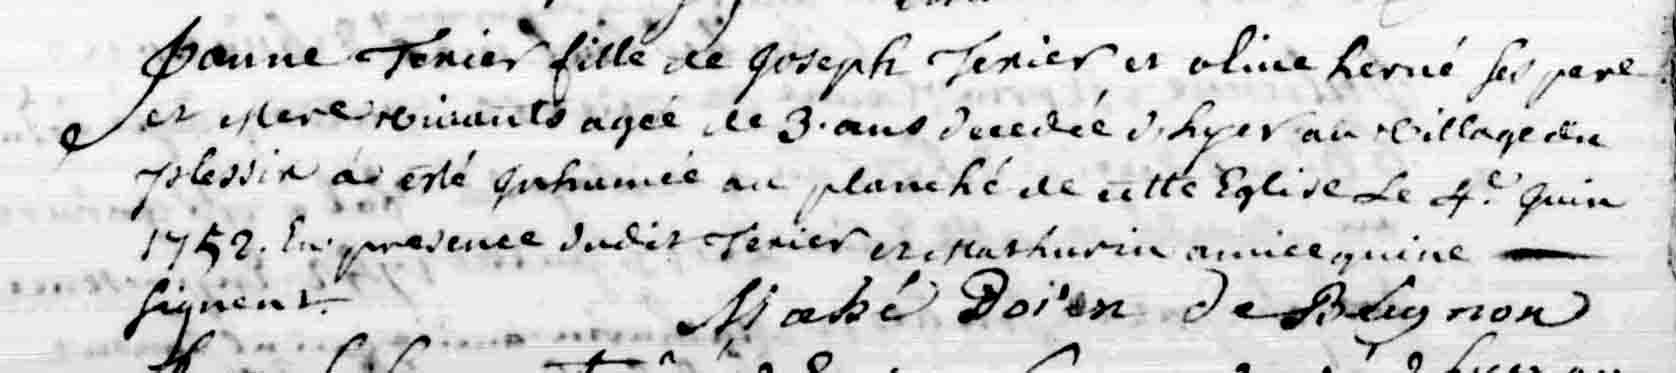 Janne Terier fille de Joseph Terier et oline hervé ses pere
et Mere vivants agée de 3. ans decedée d'hyer au village du
plessix a esté Inhumée au planché de cette Eglise Le 4.e Juin
1752. En presence dudit Terier et Mathurin amice qui ne
signent.
Mahé Doïen de Beignon